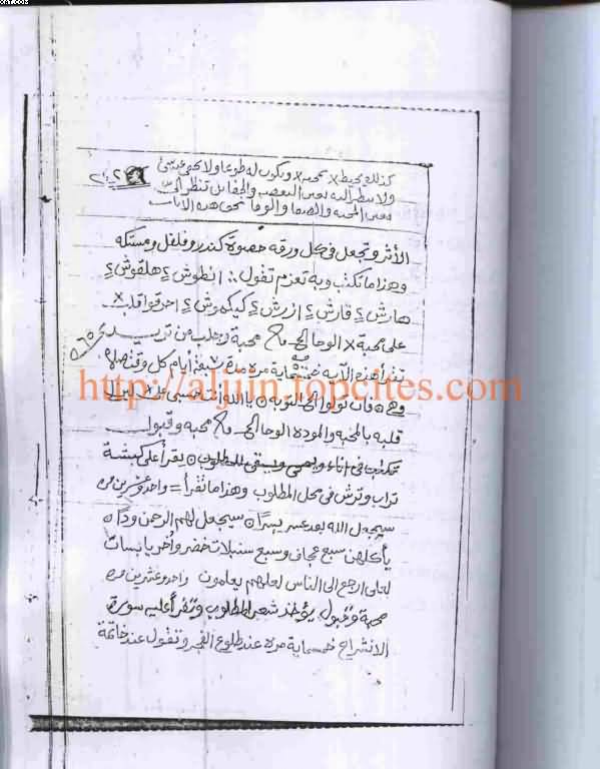 كذلك يحيط × بمحبه × ويكون له طوعا ولا
ولا ينظر إليه بعين البغض والجفا بل تنظر إليه
بعين المحبه والصفا والوفا بحق هذه الآيات
الأثر وتجعل في كل ورقه حصوة كندر وفلفل ومستكه
وهذا ما تكتب وبه تعزم تقول :. انطوش ٤ هلقوش ٤
هارش ٤ قارش ٤ ازرش ٤ كيكموش ٤ احرقوا قلب ×
على محبة × الوحا الخ محبة وجلب من تريد
تقرأ هذه الآية خمسماية مره مدة سبعة أيام كل وقت صلاة
وهي ٥ فان تولوا الخ التوبه ٥ يا الله
http://aljiin.topcites.com
قلبه بالمحبه والموده الوحا الخ محبه وقبول
تكتب في اناء ويمحى ويسقى للمطلوب ٥ يقرأ على كبشة
تراب وترش في محل المطلوب وهذا ما تقرأ = واحد وعشرين مره
سيجعل الله بعد عسر يسرا ٥ سيجعل لهم الرحمن ودا ٥
يأكلهن سبع عجاف وسبع سنبلات خضر وأخر يابسات
لعلي ارجع الى الناس لعلهم يعلمون واحد وعشرين مره
محبة وقبول يؤخذ شعر المطلوب وتقرأ عليه سورة
الانشراح خمسماية مره عند طلوع الفجر وتقول عند خاتمة